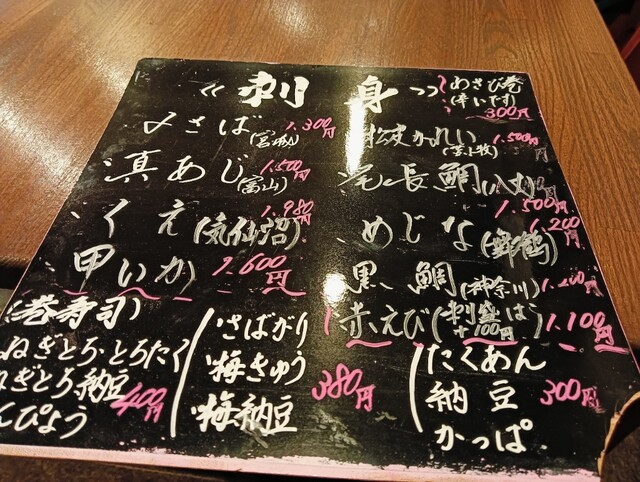 《刺身》
わさび巻
(辛いです)
300円
〆さば(宮城) 1.300円
真あじ(富山) 1.500円
くえ(気仙沼) 1.980円
甲いか 1.600円
松皮かれい(苫小牧) 1.500円
尾長鯛(八丈) 1500円
めじな(舞鶴) 1.200円
黒鯛(神奈川) 1.200円
赤えび(刺盛 +100円) 1.100円
(巻寿司)
ねぎとろ・とろたく
ねぎとろ納豆
んぴょう
400円
さばがり
梅きゅう
梅納豆
380円
たくあん
納豆
かっぱ
300円